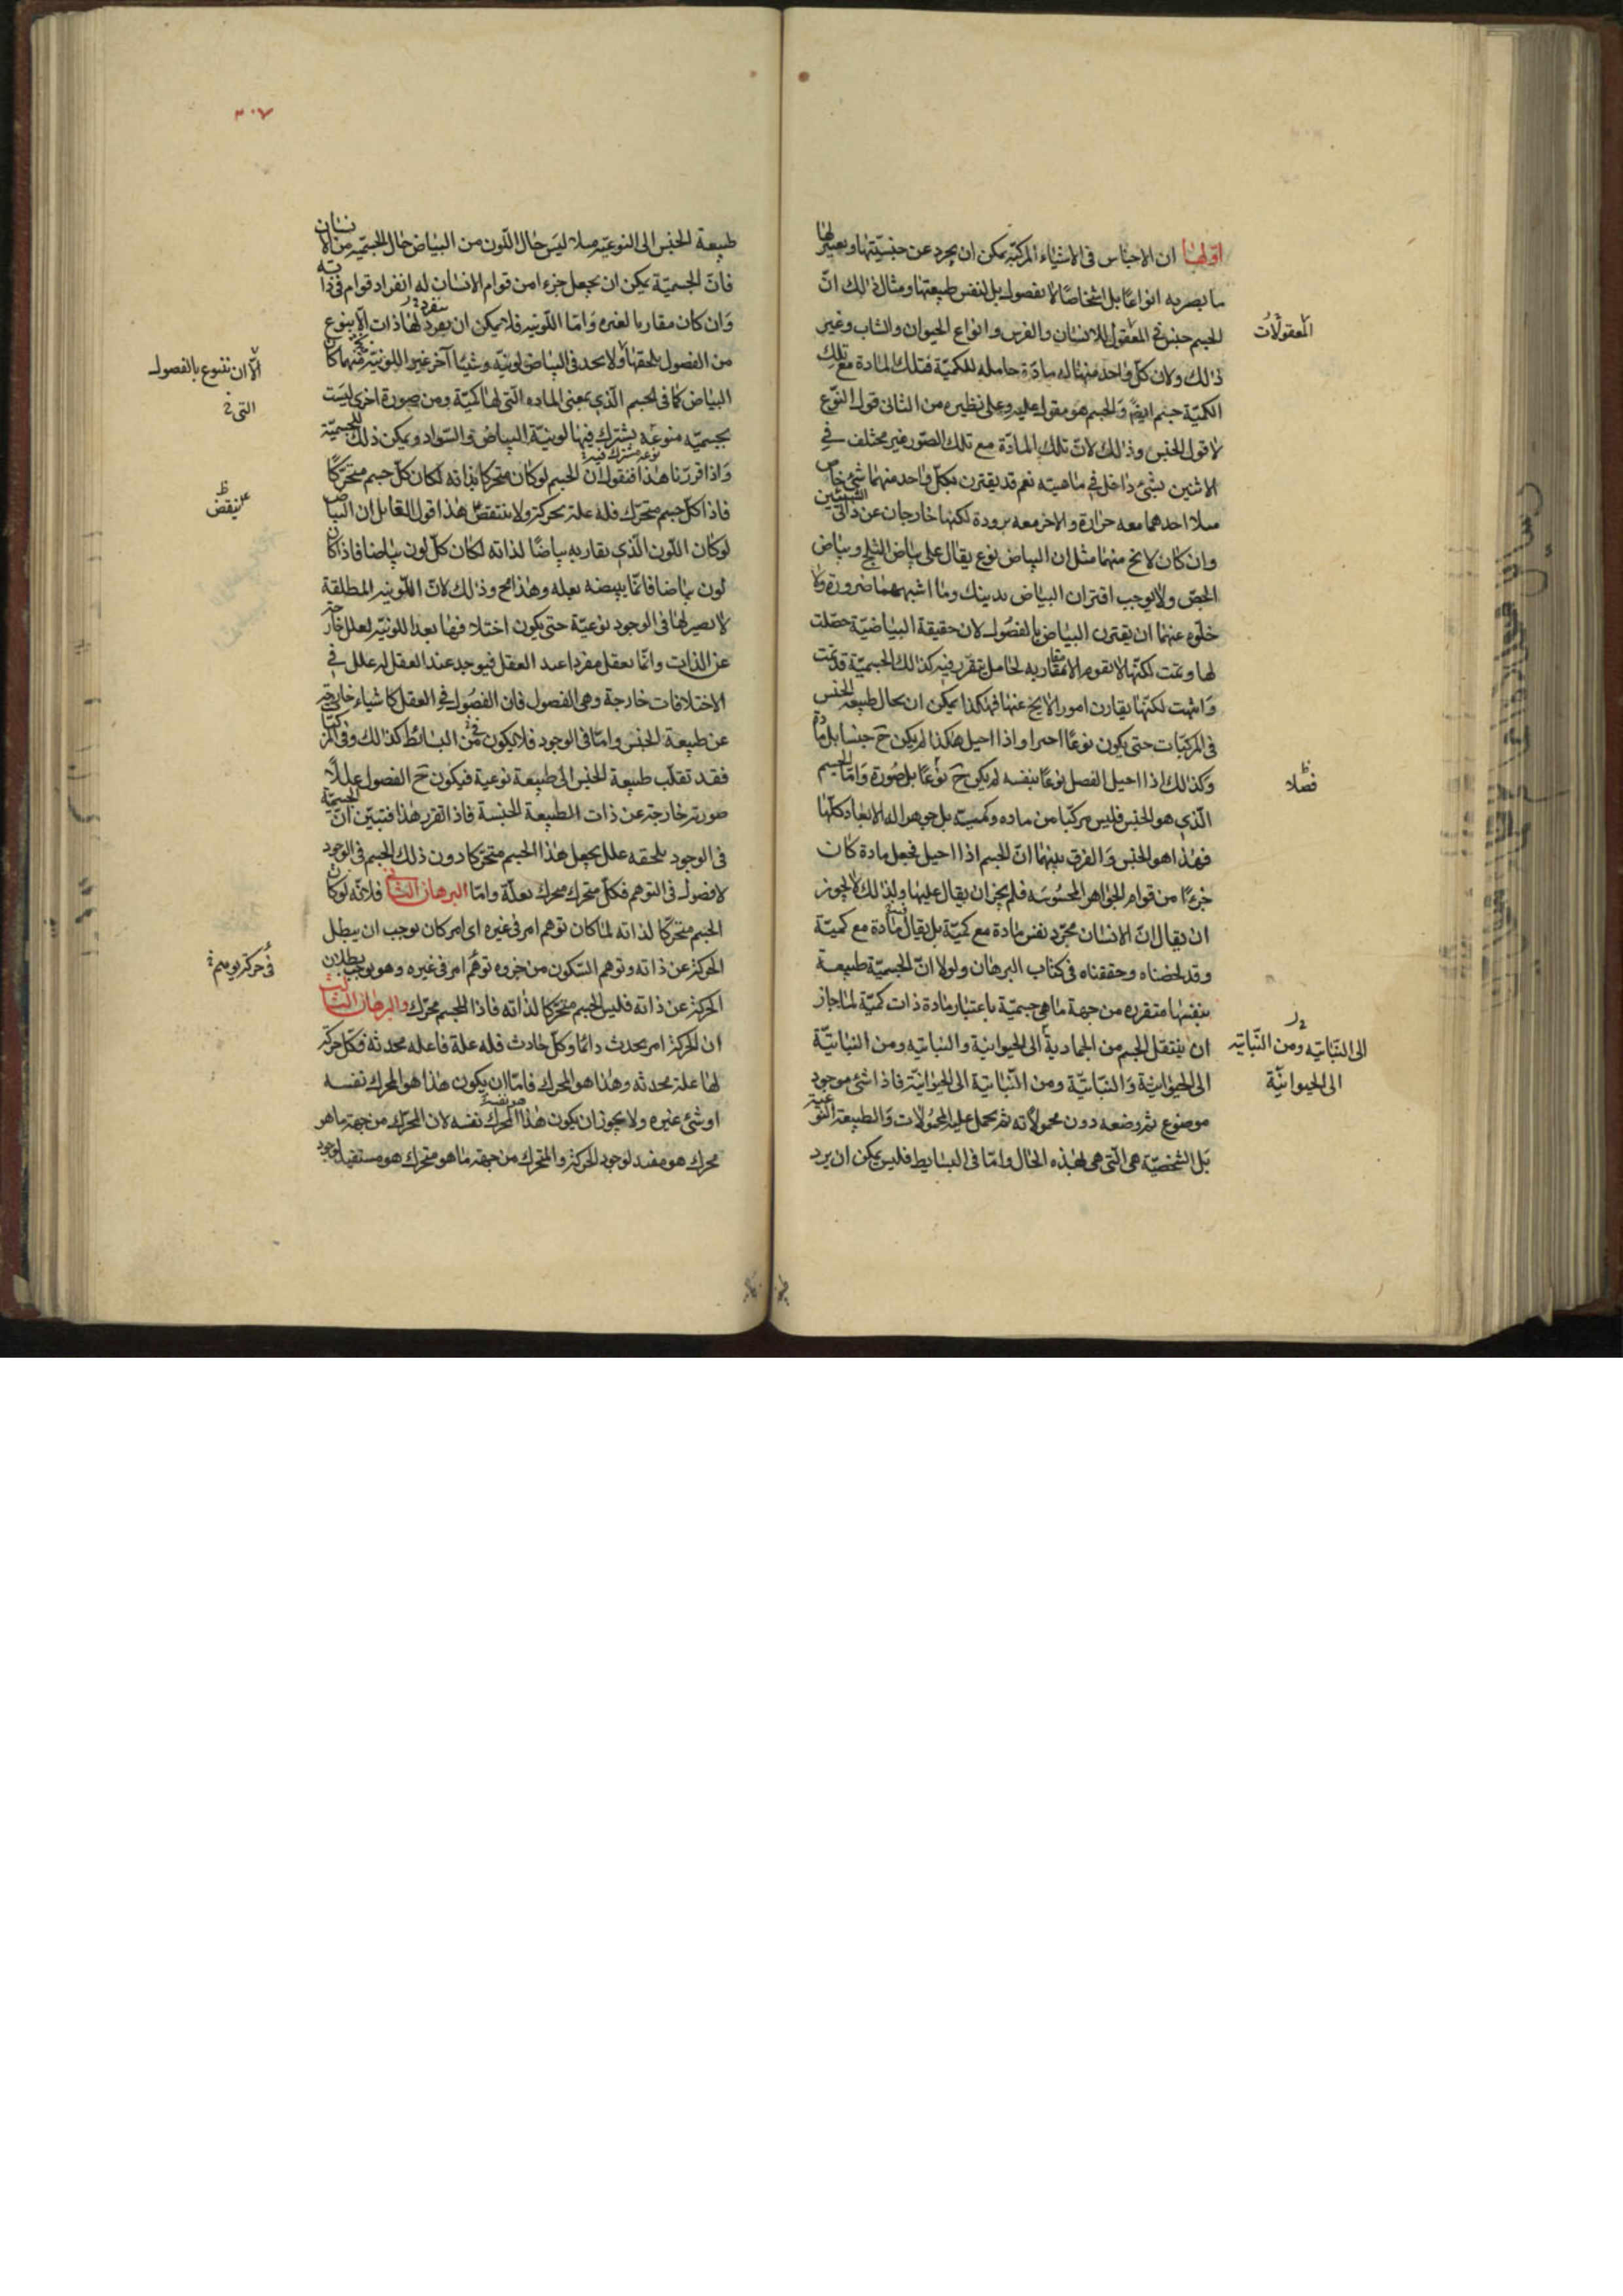 اوّلها ان الاجناس فى الاشياء المركبة يمكن ان يجرد عن جنسيّتها ويعتبر لها
ما يصير به انواعًا بل اشخاصًا لا بفصول بل لنفس طبيعتها ومثال ذالك انّ
الجسم جنس فى المعقول للانسان والفرس وانواع الحيوان والشاب وغير
المعقولات
ذلك ولان كلّ واحد منها له مادّة حاملة للكميّة فتلك المادة مع تلك
الكميّة جسم ايضً والجسم هو مقول عليه وعلى نظيره من الثانى قول النّوع
لا قول الجنس وذالك لانّ تلك المادّة مع تلك الصّور غير مختلف فى
الاثنين بشئ داخل فى ماهيته نعم قد يقترن بكلّ واحد منهما شئ خاص
مثلا احدهما معه حرارة والاخر معه برودة لكنها خارجان عن ذاتى الشيئين
وان كان لا يخ منهما مثل ان البياض نوع يقال على بياض الثلج وبياض
الجصّ ولا يوجب اقتران البياض بدينك وما اشبههما ضرورة ولا
خلوه عنهما ان يقترن البياض بالفصول لان حقيقة البياضيّة حصّلت
لها وتمت لكنّها لا تقوم الا مقاربه لحامل يتقرر فيه كذالك الجسميّة قد تمت
وانتهت لكنّها يقارن امور الا يخ عنها فهكذا يمكن ان يحال طبيعة الجنس
فى المركبّات حتى يكون نوعًا اخيرا واذا احيل هكذا لم يكن ح جنسا بل مادّة
وكذالك اذا احيل الفصل نوعًا بنفسه لم يكن ح نوعًا بل صُورة وامّا الجسم
فصْلا
الّذى هو الجنس فليس مركبًا من ماده وكميّة بل جوهر اله الابعاد كلّها
فهذا هو الجنس والفرق بينهما انّ الجسم اذا احيل فجعل مادة كان
جزءًا من قوام الجواهر المحسُوسَه فلم يجز ان يقال عليها ولذالك لا يجوز
ان يقال انّ الانسان مجرّد نفس مادة مع كميّة بل يقال مادة مع كميّة
وقد لخصناه وحققناه فى كتاب البرهان ولولا انّ الجسميّة طبيعة
بنفسها متقرره من جهة ما هى جسميّة باعتبار مادة ذات كميّة لما جاز
ان ينتقل الجسم من الجمادية الى الحيوانية والنباتيه ومن النباتيّة
الى النّباتيه ومن النّباتيّه
الى الحيوانيّة
الى الحيوانيّة والنّباتيّة ومن النّباتية الى الحيوانيّة فاذا شئ موجود
موضوع ثم وضعه دون محمولاته ثم يحمل عليه المحمُولات والطبيعة النوعية
بل الشخصيّة هى الّتى هى لهذه الحال وامّا فى البسايط فليس يمكن ان يرد
٣٠٧
طبيعة الجنس الى النوعيّة مثلا ليَس حال اللّون من البياض حال الجسميّه من الانسان
فانّ الجسميّة يمكن ان يجعل جزء امن قوام الانسان له انفراد قوام فى ذاته
وَان كان مقاربا لغيره وَامّا اللّونيه فلا يمكن ان يفرد لها ذات الّا بنوع
من الفصول يلحقها ولا يحد فى البياض لونيّة وشيئًا آخر غير اللونيّة منهما كان
الّا ان تتنوع بالفصول
التى
البياض كما فى الجسم الّذى بمعنى الماده الّتى لها الكميّة ومن صورة اخرى ليسَت
بجسميّه منوعَه يشترك فيها لونيّة البياض والسّواد ويمكن ذلك للجسميّة
وَاذا قررنا هذا فنقول ان الجسم لو كان متحركا بذاته لكان كلّ جسم متحركًا
فاذا كلّ جسم متحرّك فله علة يحركه ولا ينتقض على هذا قول القائل ان البياض
ينقض
لو كان اللّون الّذى يقاربه بياضًا لذاته لكان كلّ لون بياضا فاذا كان
لون بياضا فانّما يبيضه بعلة وهذا مح وذالك لانّ اللّونيه المطلقة
لا يصير لها فى الوجود نوعيّة حتى يكون اختلافها بعد اللونيّه لعلل خارجه
عن الذات وانّما يعقل مفردا عند العقل فيوجد عند العقل لم علل فى
الاختلافات خارجة وهى الفصول فان الفصُول فى العقل كاشياء خارجة
عن طبيعة الجنس وامّا فى الوجود فلا يكون من البسائط كذالك وفى المركبات
فقد تقلب طبيعة الجنس الى طبيعة نوعية فيكون ح الفصول عللًا
صورته خارجة عن ذات الطبيعة الجنسة فاذا تقرر هذا فتبيّن انّ الجسميّة
فى الوجود يلحقه علل يجعل هذا الجسم متحرّكا دون ذلك الجسم فى الوجود
لا فصول فى التوهم فكلّ متحرك محرك بعلّة وامّا البرهان الثانى فلانّه لو كان
الجسم متحركًا لذاته لما كان توهم امر فى غيره اى امر كان يوجب ان يبطل
الحركة عن ذاته وتوهم السّكون من جزوه توهّم امر فى غيره وهو يوجب بطلان
فى حركه يوسم
الحركة عن ذاته فليس الجسم متحركا لذاته فاذا للجسم محرّك والبرهان الثالث
ان الحركة امر يحدث دائمًا وكلّ حادث فله علة فاعله محدثه فكلّ حركة
لها علة محدثه وهذا هو المحرك فامّا ان يكون هذا هو المحرك نفسه
او شئ غيره ولا يجوز ان يكون هذا المحرك نفسه لان المحرّك من جهة ما هو
محرك هو مفيد لوجود الحركة والمتحرك من جهة ما هو متحرك هو مستفيد لوجود